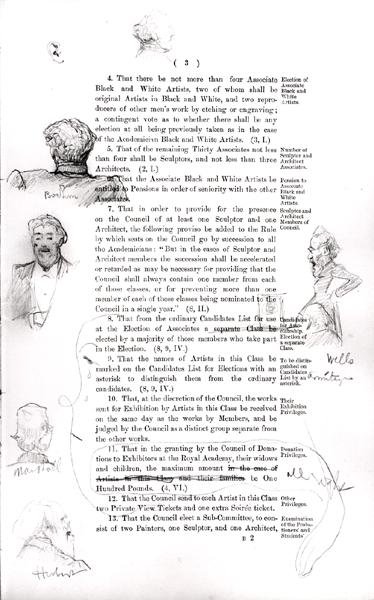 ( 3 )
4. That there be not more than four Associate
Black and White Artists, two of whom shall be
original Artists in Black and White, and two repro-
ducers of other men's work by etching or engraving;
a contingent vote as to whether there shall be any
election at all being previously taken as in the case
of the Academician Black and White Artists. (3, I.)
Election of
Associate
Black and
White
Artists.
5. That of the remaining Thirty Associates not less
than four shall be Sculptors, and not less than three
Architects. (2, I.)
Number of
Sculptor and
Architect
Associates.
6. That the Associate Black and White Artists be
entitled to Pensions in order of seniority with the other
Associates.
Pension to
Associate
Black and
White
Artists.
7. That in order to provide for the presence
on the Council of at least one Sculptor and one
Architect, the following proviso be added to the Rule
by which seats on the Council go by succession to all
the Academicians: "But in the cases of Sculptor and
Architect members the succession shall be accelerated
or retarded as may be necessary for providing that the
Council shall always contain one member from each
of those classes, or for preventing more than one
member of each of those classes being nominated to the
Council in a single year." (8, II.)
Sculptor and
Architect
Members of
Council.
8. That from the ordinary Candidates List for use
at the Election of Associates a separate Class be
elected by a majority of those members who take part
in the Election. (8, 9, IV.)
Candidates
for Asso-
ciateship.
Election of
a separate
Class.
9. That the names of Artists in this Class be
marked on the Candidates List for Elections with an
asterisk to distinguish them from the ordinary
candidates. (8, 9, IV.)
To be distin-
guished on
Candidates
List by an
asterisk.
Wells
10. That, at the discretion of the Council, the works
sent for Exhibition by Artists in this Class be received
on the same day as the works by Members, and be
judged by the Council as a distinct group separate from
the other works.
Their
Exhibition
Privileges.
11. That in the granting by the Council of Dona-
tions to Exhibitors at the Royal Academy, their widows
and children, the maximum amount in the case of
Artists in this Class and their families be One
Hundred Pounds. (4, VI.)
Donation
Privileges.
12. That the Council send to each Artist in this Class
two Private View Tickets and one extra Soirée ticket.
Other
Privileges.
13. That the Council elect a Sub-Committee, to con-
sist of two Painters, one Sculptor, and one Architect,
Examination
of the Proba-
tioners' and
Students'
B 2